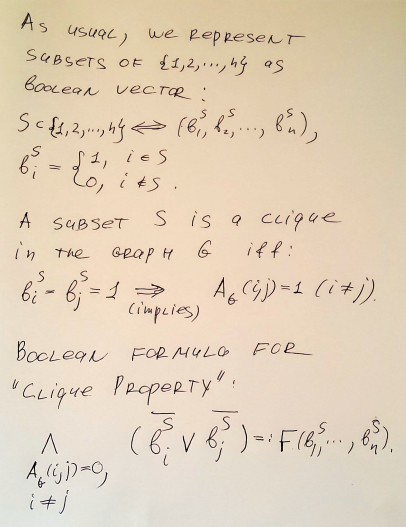 As usual, we represent
subsets of {1,2,...,n} as
Boolean vector:
S⊂{1,2,...,n} ⟺ (b₁ˢ, b₂ˢ, ..., bₙˢ),
bᵢˢ = {1, i∈S
0, i∉S.
A subset S is a clique
in the graph G iff:
bᵢˢ = bⱼˢ = 1 ⟹ A_G(i,j)=1 (i≠j).
(implies)
Boolean formula for
"Clique Property":
∧ (b̅ᵢˢ ∨ b̅ⱼˢ) =: F(b₁ˢ, ..., bₙˢ).
A_G(i,j)=0,
i≠j